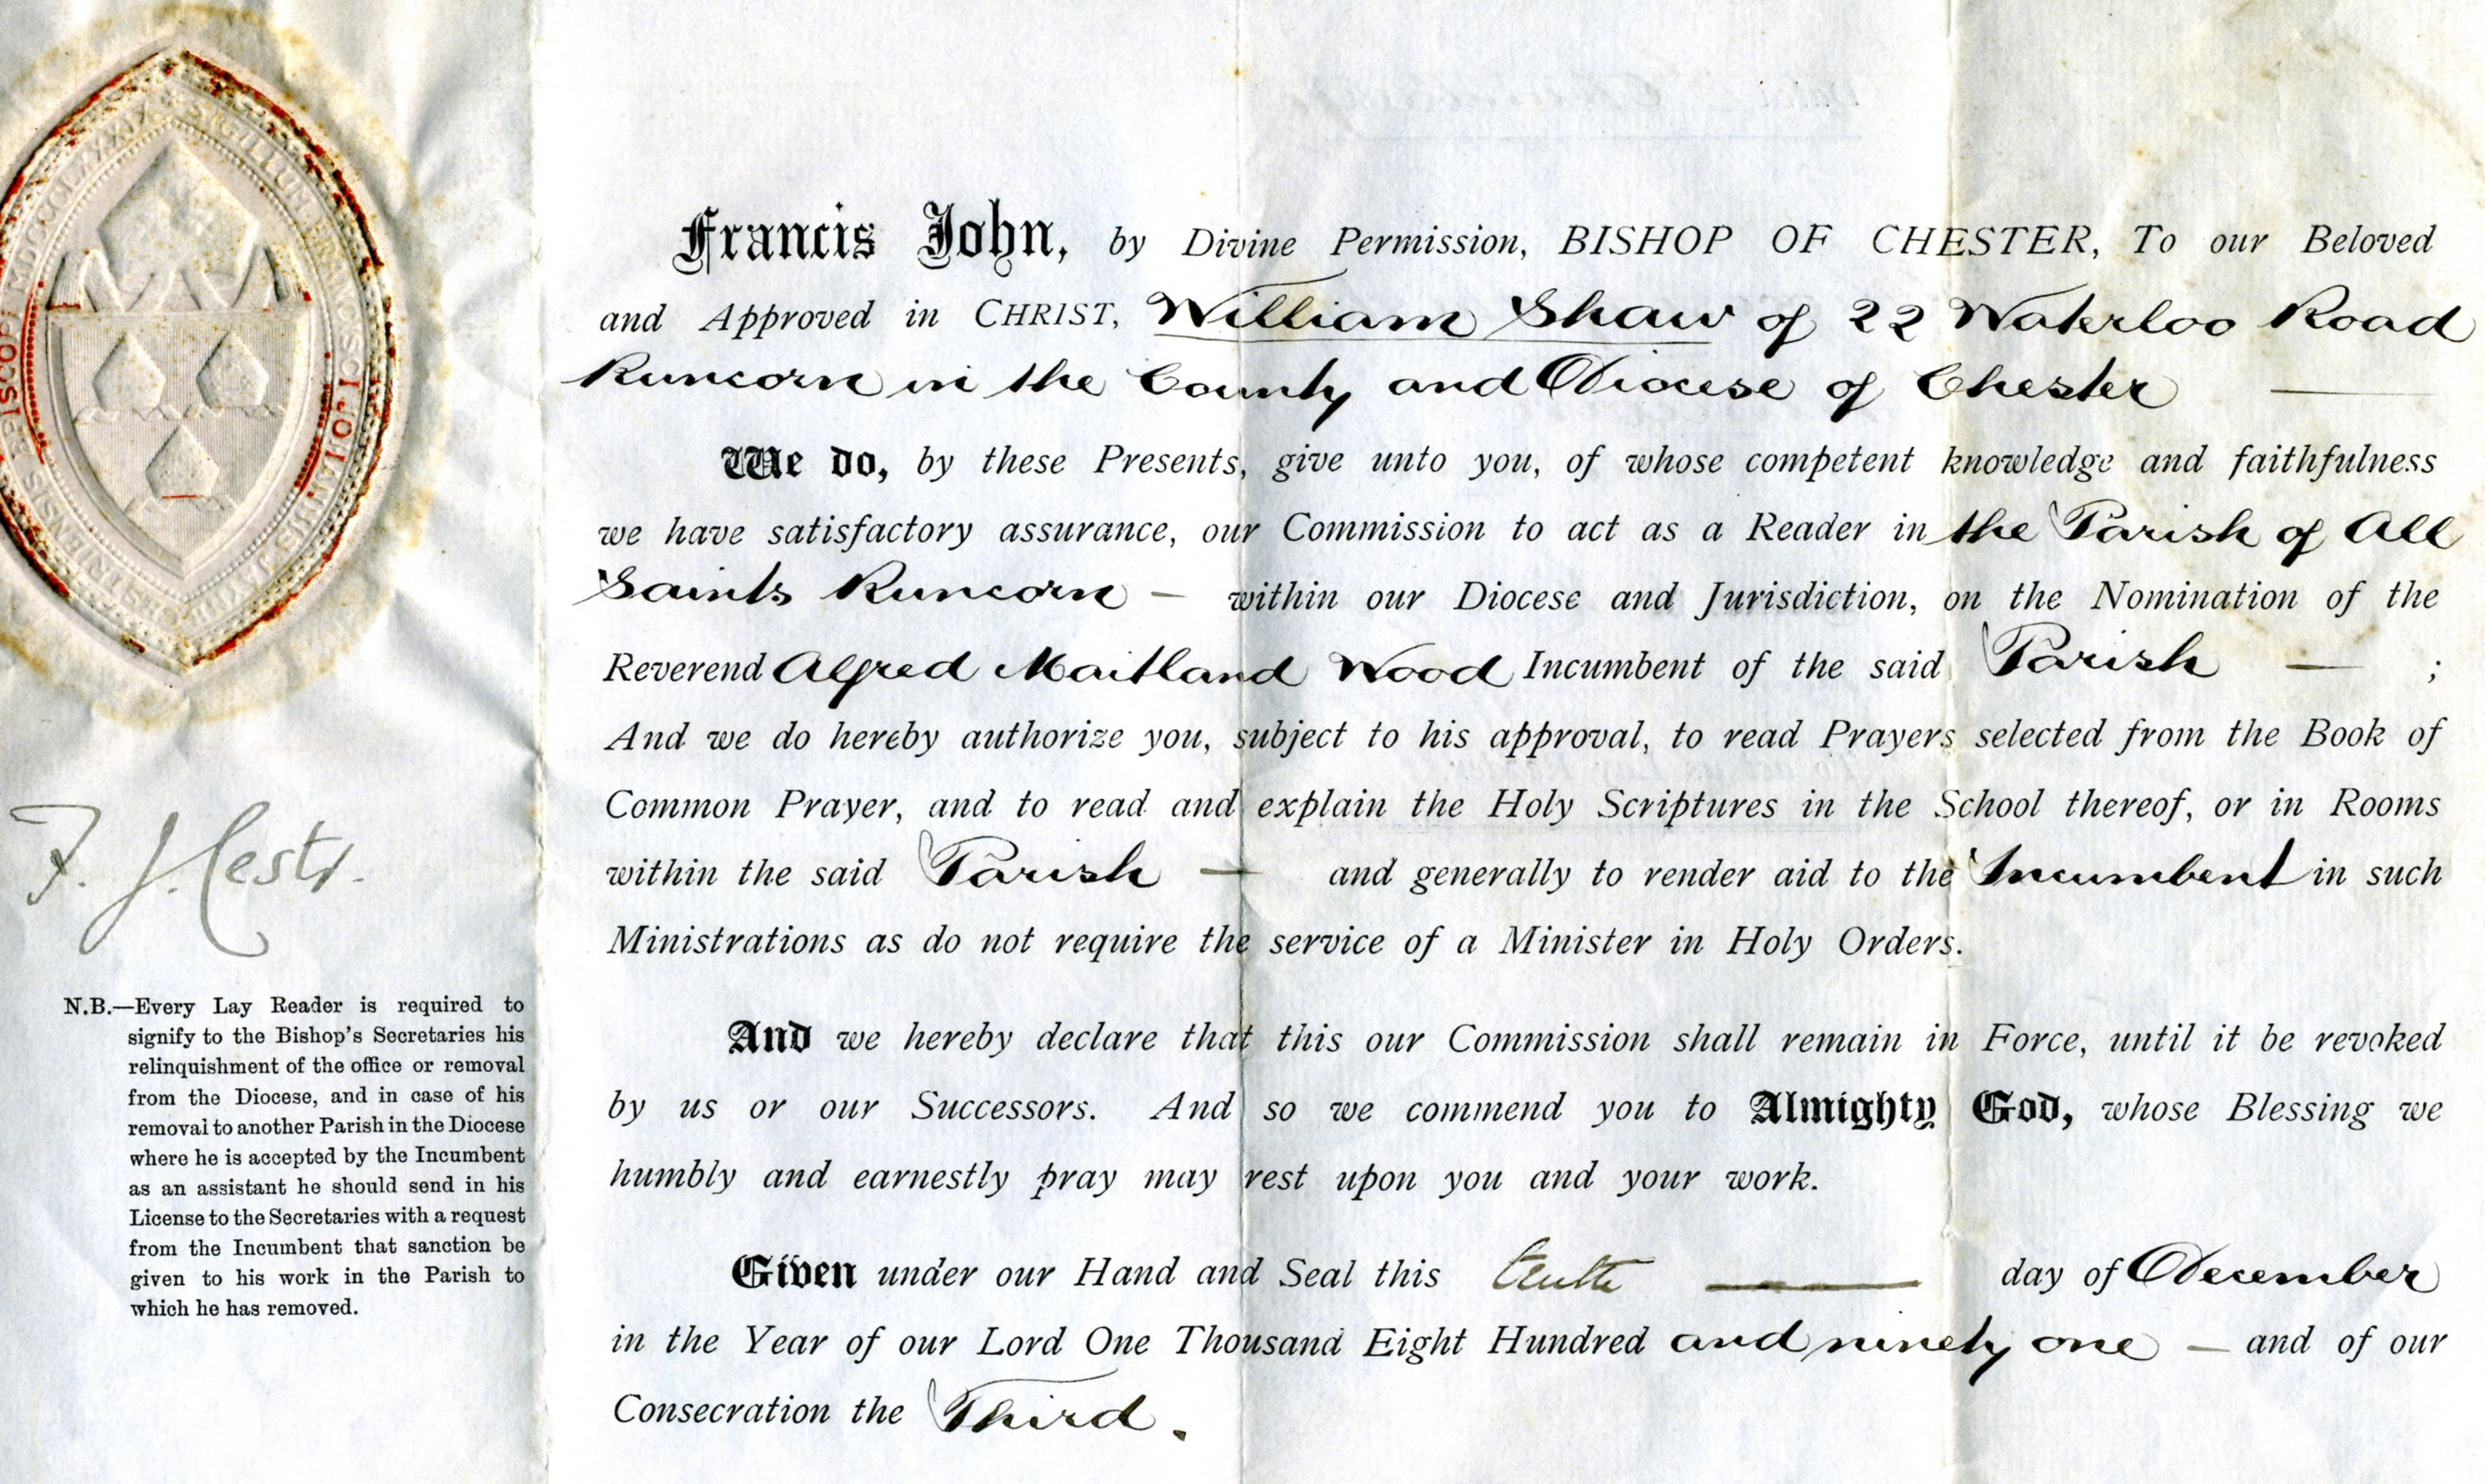 Francis John, by Divine Permission, BISHOP OF CHESTER, To our Beloved
and Approved in CHRIST, William Shaw of 22 Waterloo Road
Runcorn in the County and Diocese of Chester —
We do, by these Presents, give unto you, of whose competent knowledge and faithfulness
we have satisfactory assurance, our Commission to act as a Reader in the Parish of All
Saints Runcorn — within our Diocese and Jurisdiction, on the Nomination of the
Reverend Alfred Maitland Wood Incumbent of the said Parish — ;
And we do hereby authorize you, subject to his approval, to read Prayers selected from the Book of
Common Prayer, and to read and explain the Holy Scriptures in the School thereof, or in Rooms
within the said Parish — and generally to render aid to the Incumbent in such
Ministrations as do not require the service of a Minister in Holy Orders.
And we hereby declare that this our Commission shall remain in Force, until it be revoked
by us or our Successors. And so we commend you to Almighty God, whose Blessing we
humbly and earnestly pray may rest upon you and your work.
Given under our Hand and Seal this tenth — day of December
in the Year of our Lord One Thousand Eight Hundred and ninety one — and of our
Consecration the Third.
SIGILLUM FRANCISCI IOHANNIS EPISCOPI
F. J. Cestr.
N.B.—Every Lay Reader is required to
signify to the Bishop's Secretaries his
relinquishment of the office or removal
from the Diocese, and in case of his
removal to another Parish in the Diocese
where he is accepted by the Incumbent
as an assistant he should send in his
License to the Secretaries with a request
from the Incumbent that sanction be
given to his work in the Parish to
which he has removed.